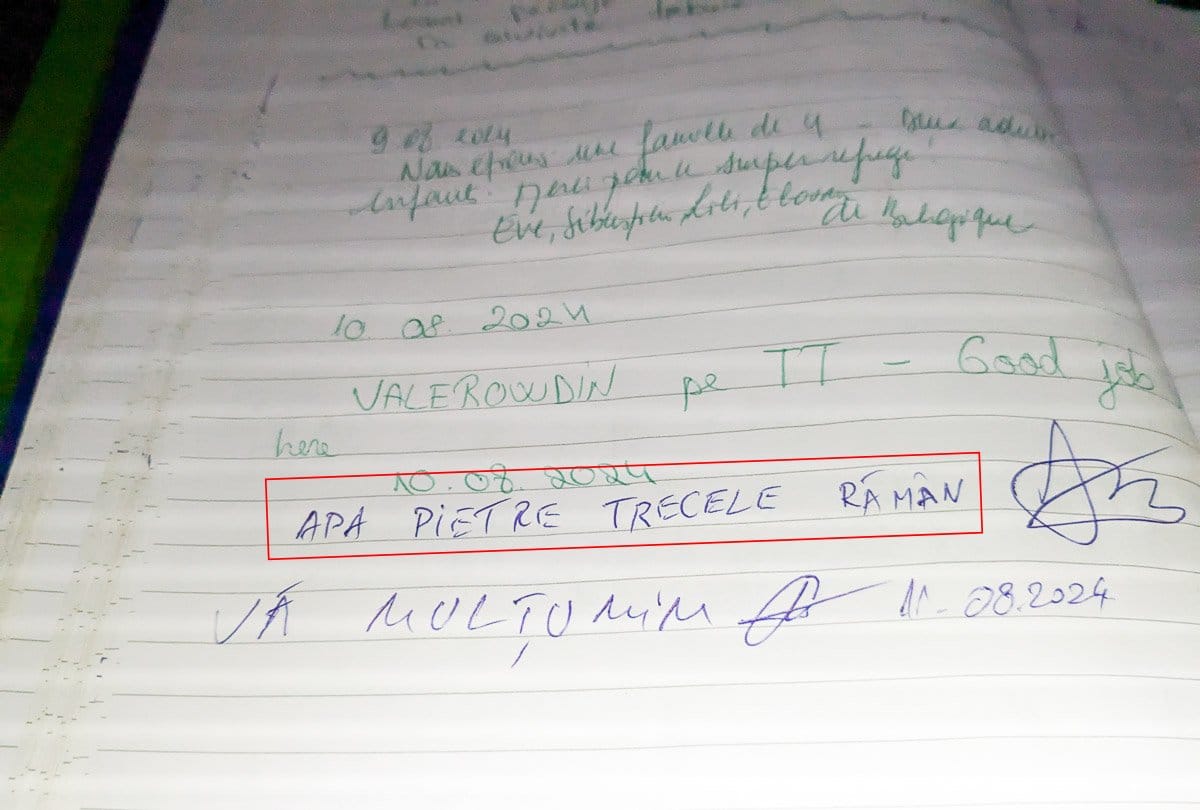 9 08 2024
Nous étions une famille de 4 - deux adultes
enfants. Merci pour ce super refuge!
Eve, Sébastien, Lili, de Belgique
10. 08. 2024
VALEROWDIN pe TT - Good job
here
10. 08. 2024
APA PIETRE TRECELE RĂMÂN
VĂ MULȚUMIM 11. 08.2024